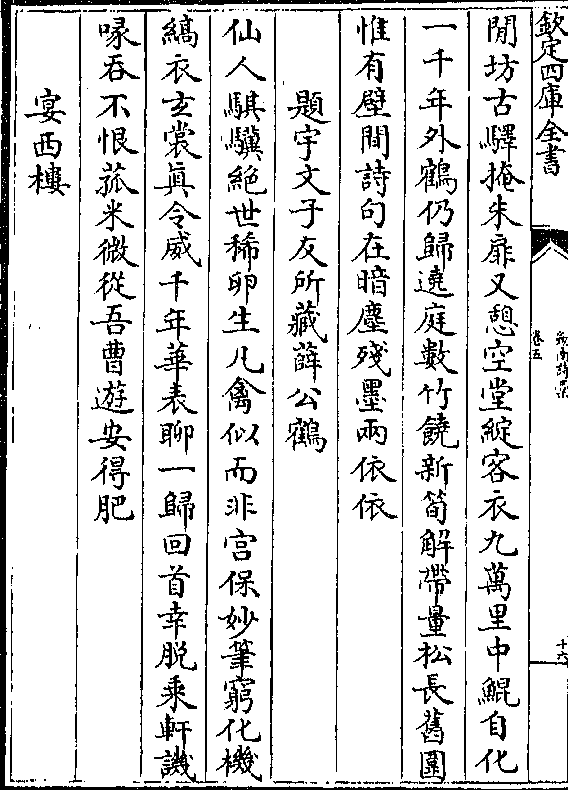 欽定四庫全書
劍南詩稾
卷五
十六
閒坊古驛掩朱扉又憩空堂綻客衣九萬里中鯤自化
一千年外鶴仍歸遶庭數竹饒新筍解帶量松長舊圍
惟有壁間詩句在暗塵殘墨兩依依
題宇文子友所藏薛公鶴
仙人騏驥絶世稀卵生凡禽似而非宫保妙筆窮化機
縞衣玄裳眞令威千年華表聊一歸回首幸脱乘軒譏
啄吞不恨菰米微從吾曹遊安得肥
宴西樓